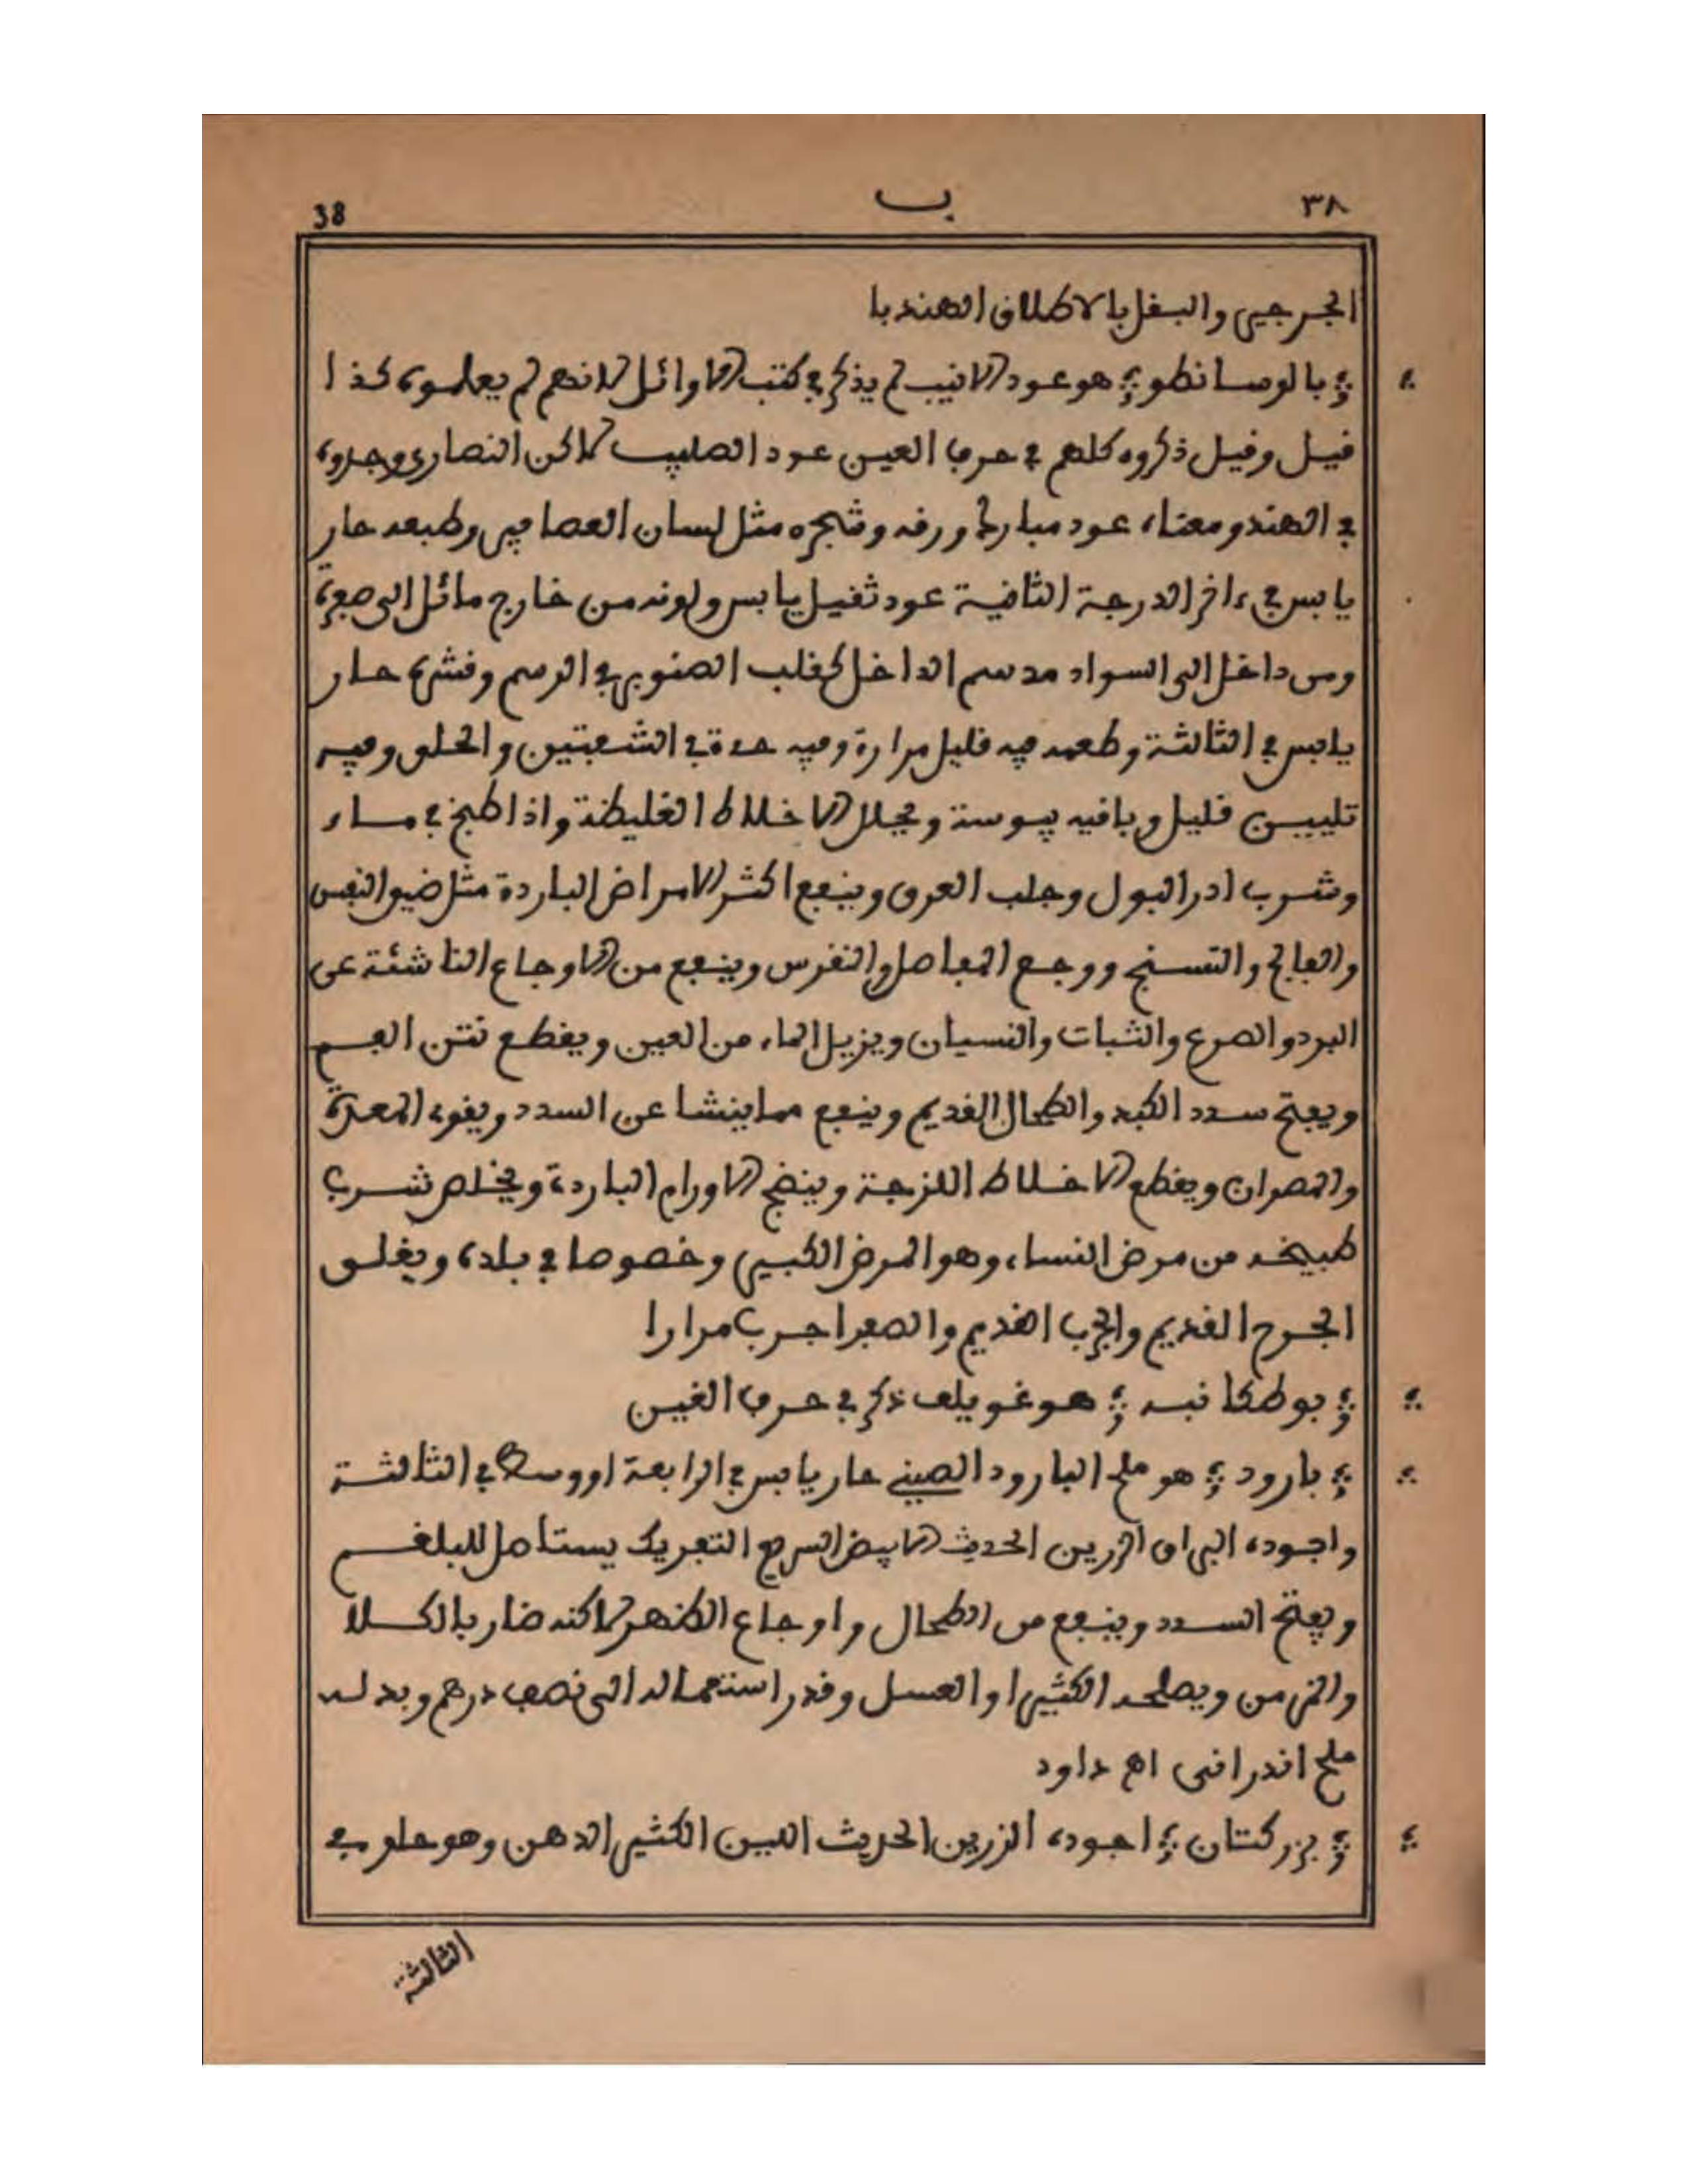 ٣٨ ب 38
الجرجير والبقل بالاطلاق الهندبا
بالوسانطو هو عود الانيب لم يذكر في كتب الاوائل لانهم لم يعلموه كذا
قيل وقيل ذكروه كلهم في حرف العين عود الصليب لاكن النصارى وجدوه
في الهند ومعناه عود مبارك ورقه وشجره مثل لسان العصافير وطبعه حار
يابس في ءاخر الدرجة الثانية عود ثقيل يابس ولونه من خارج مائل الى صفرة
ومن داخل الى السواد مدسم الداخل كقلب الصنوبر في الرسم وقشره حار
يابس في الثالثة وطعمه فيه قليل مرارة وفيه حدة في الشعبتين والحلق وفيه
تليين قليل وباقيه يبوسة ويحلل الاخلاط الغليظة واذا طبخ في ماء
وشرب ادر البول وجلب العرق وينفع اكثر الامراض الباردة مثل ضيق النفس
والفالج والتسنج ووجع المفاصل والنقرس وينفع من الاوجاع الناشئة عن
البرد والصرع والثبات والنسيان ويزيل الماء من العين ويقطع نتن الفم
ويفتح سدد الكبد والطحال القديم وينفع مما ينشا عن السدد ويقوي المعدة
والمصران ويقطع الاخلاط اللزجة وينضج الاورام الباردة ويخلص شرب
طبيخه من مرض النساء وهو المرض الكبير وخصوصا في بلده ويغلق
الجرح القديم والجرب القديم والصفرا جرب مرارا
بوطكانبه هو غويلف ذكر في حرف الغين
بارود هو ملح البارود الصيني حار يابس في الرابعة او وسط في الثالثة
واجوده البراق الرزين الحديث الابيض السريع التفريك يستاصل للبلغم
ويفتح السدد وينفع من الطحال واوجاع الظهر لاكنه ضار بالكلا
والمزمن ويصلحه الكثيرا او العسل وقدر استعماله الى نصف درهم وبدله
ملح اندراني اهـ داود
بزر كتان اجوده الرزين الحديث اللين الكثير الدهن وهو حار في
الثالثة